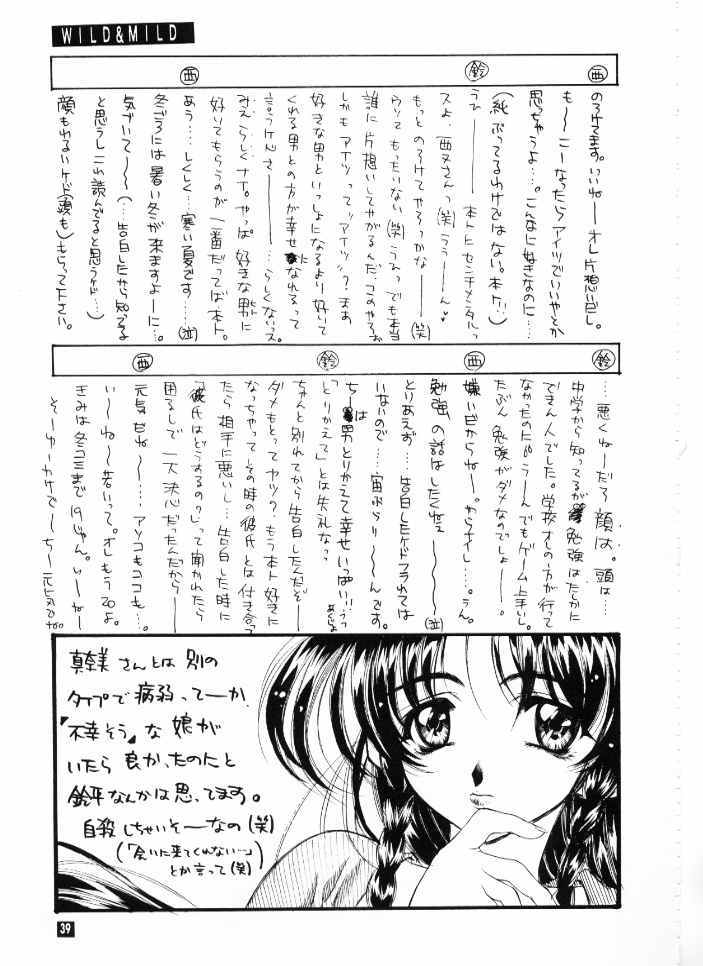 WILD&MILD
西
鈴
西
のろけてます。いいねーオレ片想いだし。
も〜〜こーなったらアイツでいいやとか
思っちゃうよ…。こんなに好きなのに…
(純ぶってるわけではない。本ト!!)
うひ────本トにセンチメンタルっ
スよ、西又さんっ(笑)ううーん♥
もっとのろけてやろっかな──(笑)
ウソでももったいない(笑)
誰に片想いしてやがるんだ、このやろお
しかもアイツってッアイツ!?まあ
好きな男といっしょになるより好いて
くれる男との方が幸せになれるって
言うケドさ────……らしくないっス。
みえらしくナイ。やっぱ好きな男に
好いてもらうのが一番だってば本ト。
あう……しくしく…寒い夏です……(泣)
冬ごろには暑い冬が来ますよーに…。
気づいて〜〜(…告白したから知ってる
と思うしこれ読んでると思うケド…)
顔もわるいケド(頭も)もらって下さい。
鈴
西
鈴
西
…悪くねーだろ顔は。頭は…
中学から知ってるが勉強はたしかに
できん人でした。学校オレの方が行って
なかったのに!!うーんでもゲーム上手いし。
たぶん勉強がダメなのでしょー。
嫌いだからねー。わからナイし…。うん。
勉強の話はしたくねェ〜〜〜(泣)
とりあえず…告白したケドフラれては
いないので…宙ぶらり〜〜んです。
ちーは男とりかえて幸せいっぱい!!
「とりかえて」とは失礼なっ
ちゃんと別れてから告白したんだぞ──
ダメもとってヤツ?もう本ト好きに
なっちゃってーその時の彼氏とは付き合って
たら相手に悪いし…告白した時に
「彼氏はどうするの?」って聞かれたら
困るしで一大決心だったんだから──
元気だね〜…アソコもココも…。
い〜ね〜若いって。オレもう20よ。
きみは冬コミまで19じゃん。いーなー
そーゆーわけでーちー元気でね
真幸美さんとは別の
タイプで病弱ってーか、
『不幸そう』な娘が
いたら良かったのにと
鈴平なんかは思ってます。
自殺しちゃいそーなの(笑)
(「会いに来てくれない…」
とか言って(笑))
39